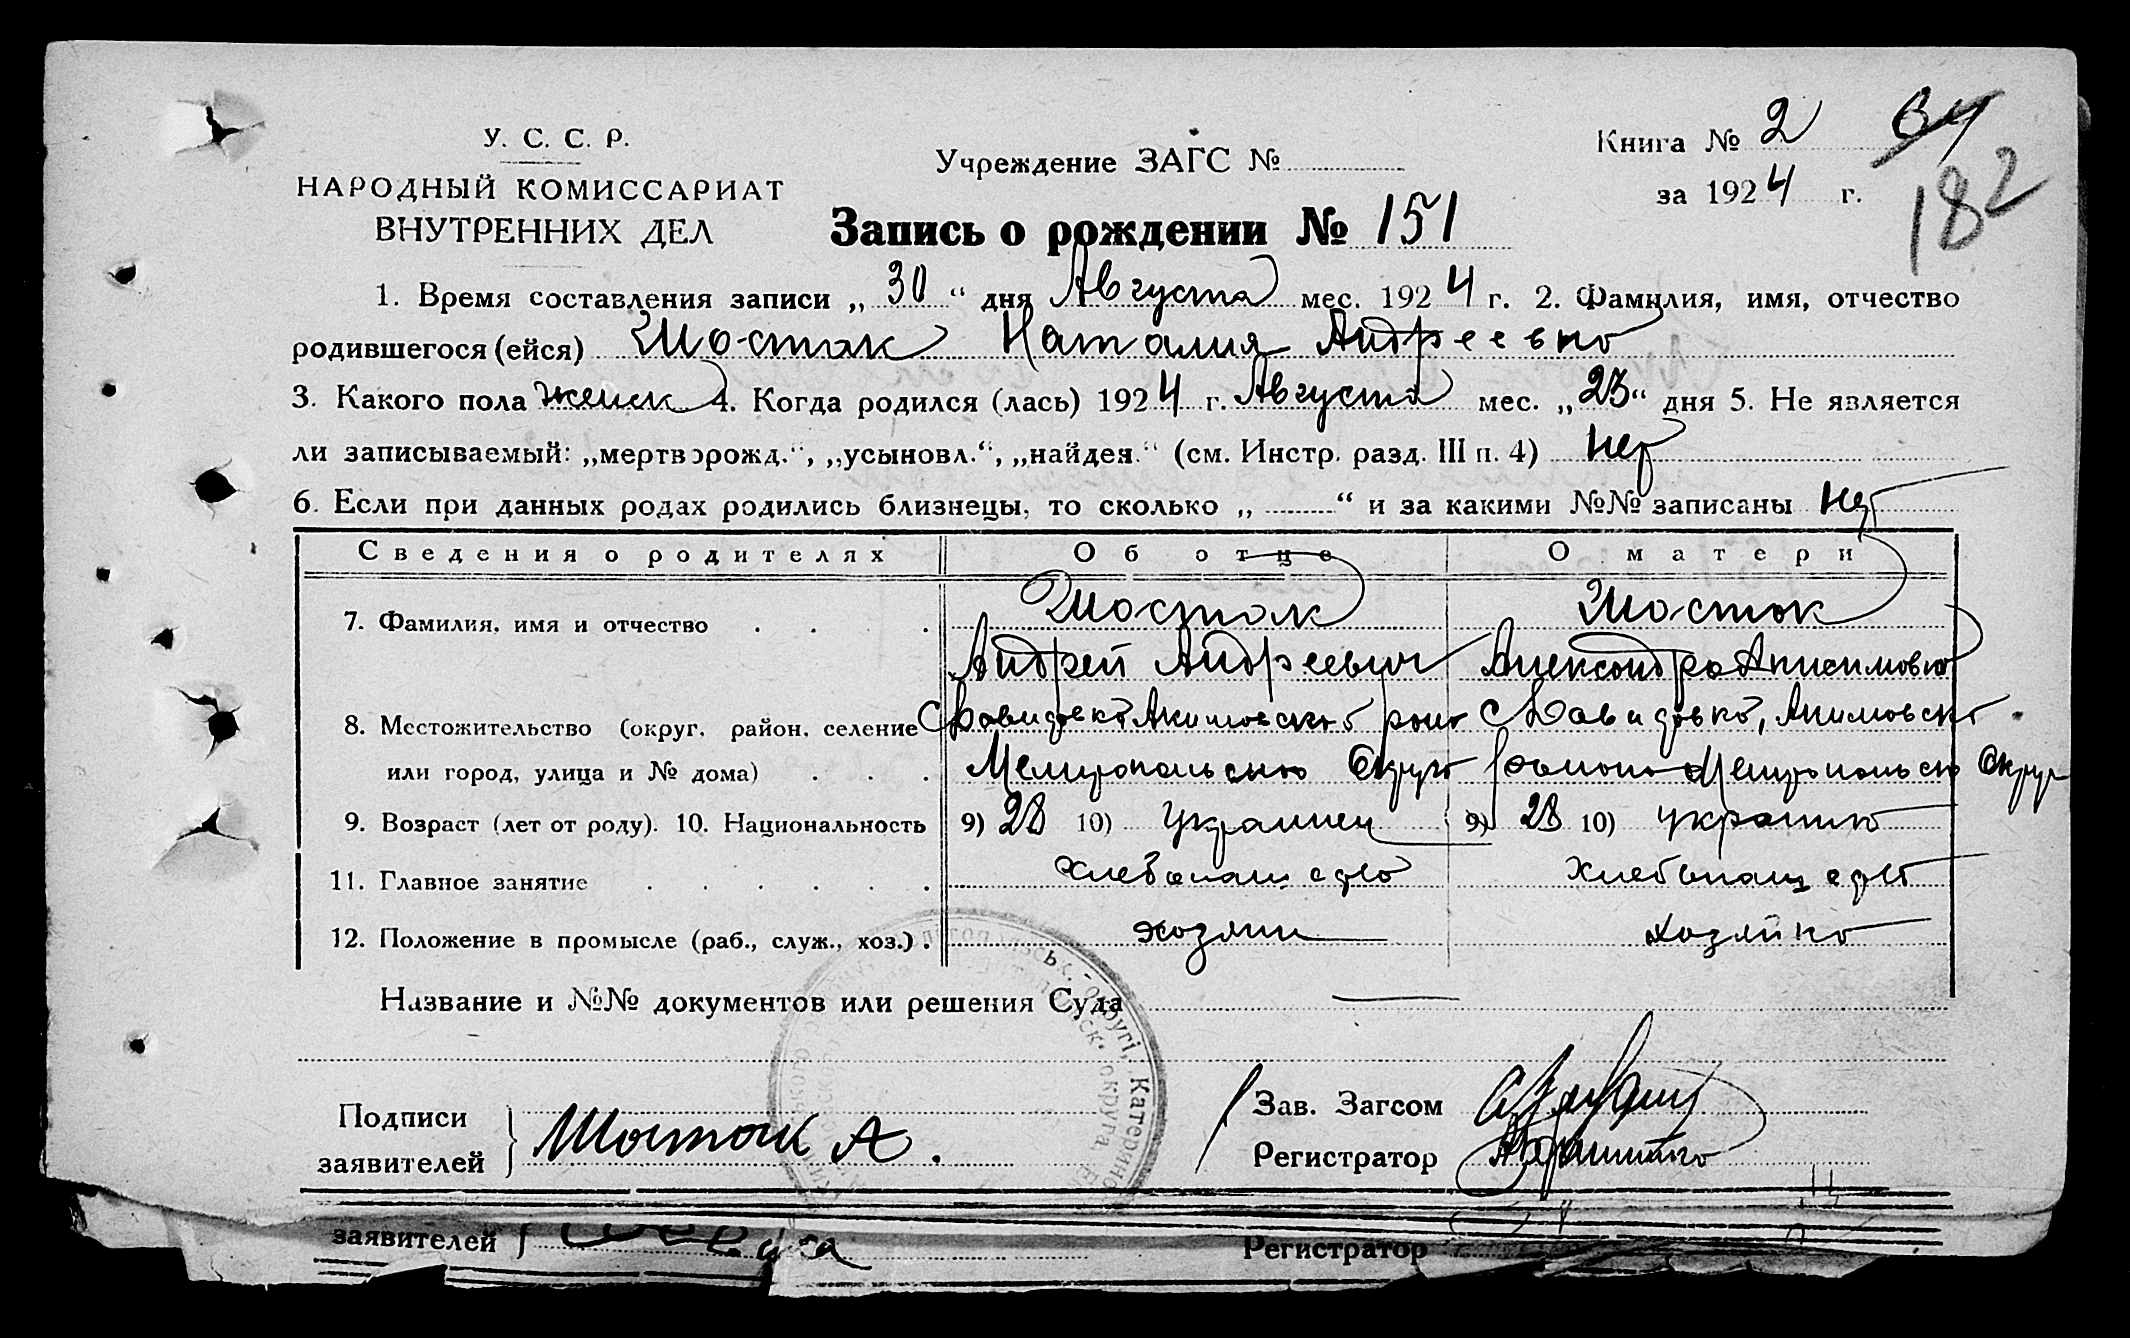 У. С. С. Р.
НАРОДНЫЙ КОМИССАРИАТ
ВНУТРЕННИХ ДЕЛ
Учреждение ЗАГС №
Книга № 2
за 1924 г.
182
Запись о рождении № 151
1. Время составления записи „ 30 “ дня Августа мес. 1924 г. 2. Фамилия, имя, отчество
родившегося (ейся) Шостак Наталия Андреевна
3. Какого пола женск 4. Когда родился (лась) 1924 г. Августа мес. „ 23 “ дня 5. Не является
ли записываемый: „мертворожд.“, „усыновл.“, „найден.“ (см. Инстр. разд. III п. 4) нет
6. Если при данных родах родились близнецы, то сколько „ “ и за какими №№ записаны нет
Сведения о родителях Об отце О матери
7. Фамилия, имя и отчество Шостак Шостак
Андрей Андреевич Александра Анисимовна
8. Местожительство (округ, район, селение С Давидовка Акимовского район С Давидовка, Акимовск
или город, улица и № дома) Мелитопольского Округа района Мелитопольск Округа
9. Возраст (лет от роду). 10. Национальность 9) 28 10) украинец 9) 28 10) украинка
11. Главное занятие хлебопашество хлебопашество
12. Положение в промысле (раб., служ., хоз.) хозяин хозяйка
Название и №№ документов или решения Суда
Подписи
заявителей Шостак А.
Зав. Загсом
Регистратор
заявителей
Регистратор